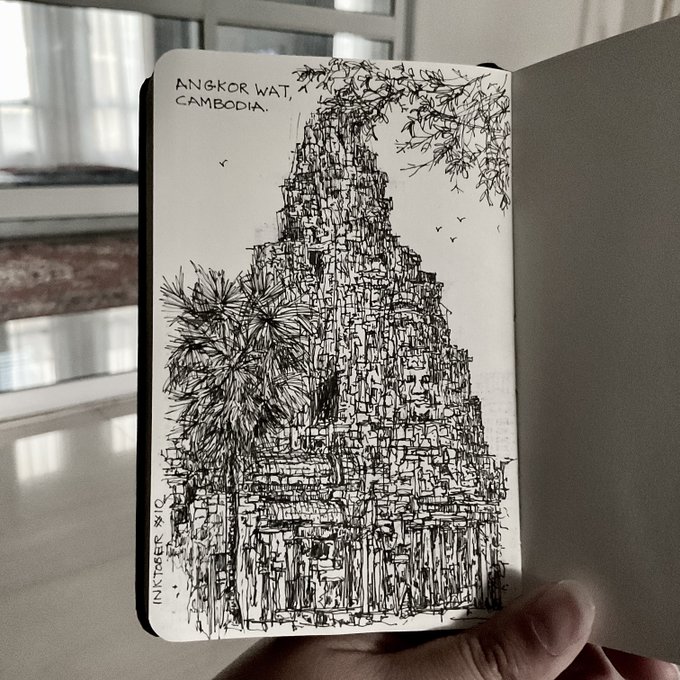 ANGKOR WAT,
CAMBODIA.
INKTOBER #10